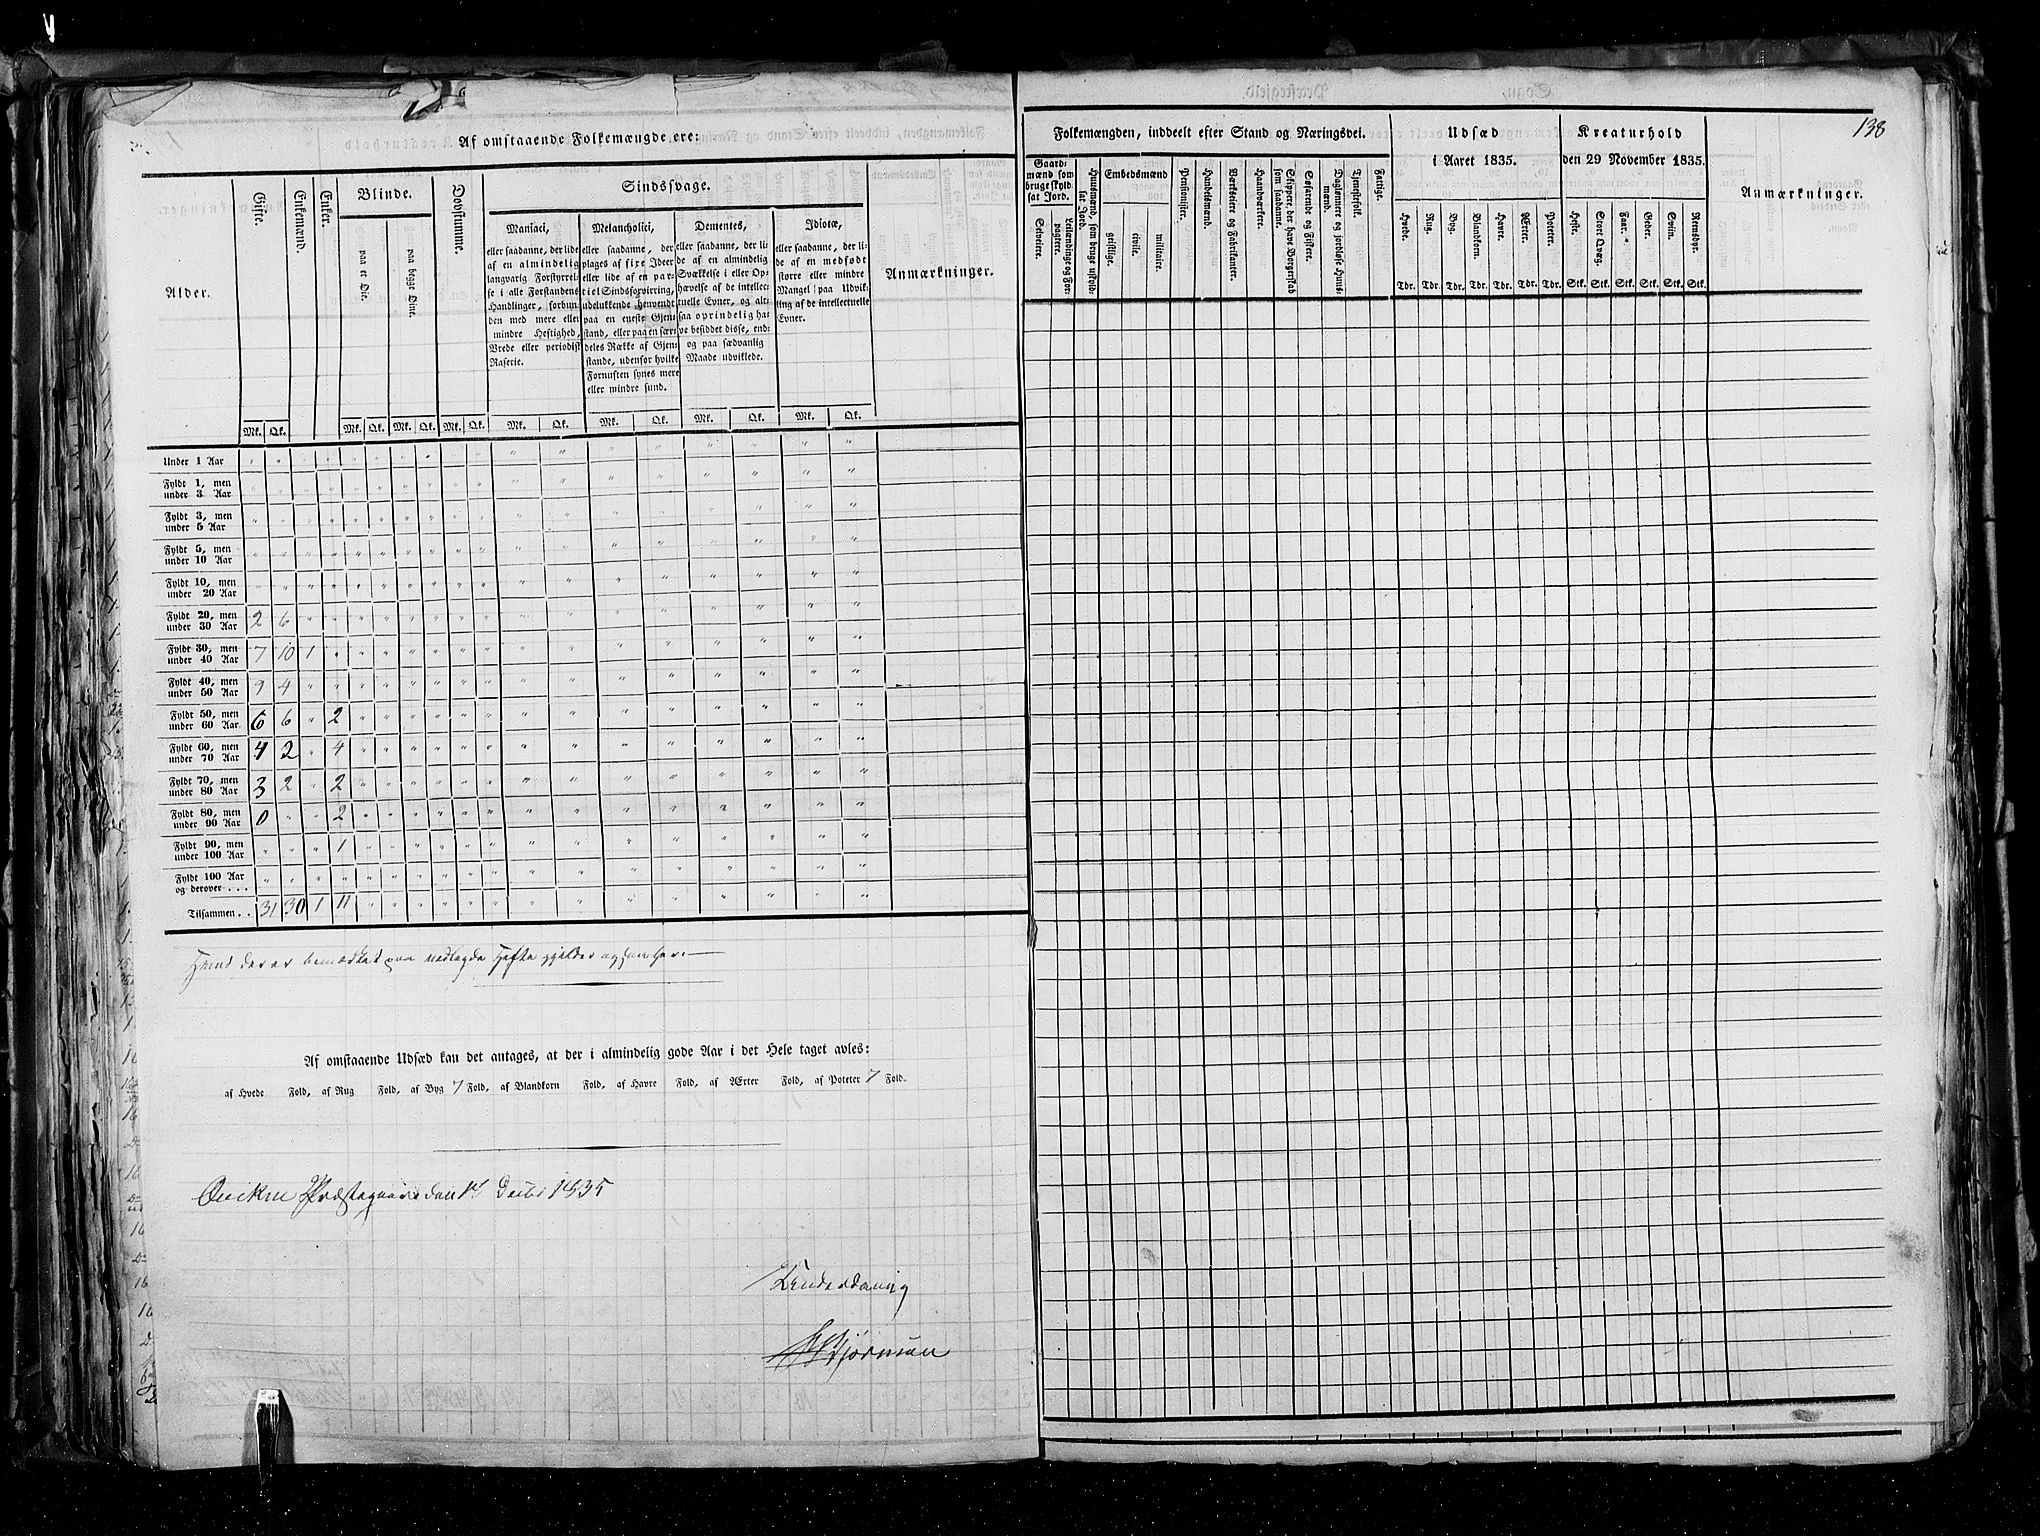 Af omstaaende Folkemængde ere:
Alder.
Gifte.
Enkemænd.
Enker.
Blinde.
paa et Øie.
paa begge Øine.
Døvstumme.
Sindssvage.
Maniaci,
eller saadanne, der lide
af en almindelig
langvarig Forstyrrel-
se i alle Forstandens
Handlinger, forbun-
den med mere eller
mindre Heftighed,
Vrede eller periodisk
Raserie.
Melancholici,
eller saadanne, der
plages af fixe Ideer
eller lide af en par-
tiel Sindsforvirring,
udelukkende henvendt
paa en eneste Gjen-
stand, eller paa en sær-
deles Række af Gjen-
stande, udenfor hvilke
Fornuften synes mere
eller mindre sund.
Dementes,
eller saadanne, der li-
de af en almindelig
Svækkelse i eller Op-
hævelse af de intellec-
tuelle Evner, og alt-
saa oprindelig ha-
ve besiddet disse, end-
og paa sædvanlig
Maade udviklede.
Idiotæ,
eller saadanne, der li-
de af en medfødt
større eller mindre
Mangel paa Udvik-
ling af de intellectuelle
Evner.
Anmærkninger.
Mk. Qk. Mk. Qk. Mk. Qk. Mk. Qk. Mk. Qk. Mk. Qk. Mk. Qk. Mk. Qk.
Under 1 Aar
Fyldt 1, men
under 3 Aar
Fyldt 3, men
under 5 Aar
Fyldt 5, men
under 10 Aar
Fyldt 10, men
under 20 Aar
Fyldt 20, men
under 30 Aar 2 6
Fyldt 30, men
under 40 Aar 7 10 1
Fyldt 40, men
under 50 Aar 9 4
Fyldt 50, men
under 60 Aar 6 6 " 2
Fyldt 60, men
under 70 Aar 4 2 " 4
Fyldt 70, men
under 80 Aar 3 2 " 2
Fyldt 80, men
under 90 Aar 0 " " 2
Fyldt 90, men
under 100 Aar " " " 1
Fyldt 100 Aar
og derover . . .
Tilsammen . . 31 30 1 11
der er bemærket paa
Af omstaaende Udsæd kan det antages, at der i almindelig gode Aar i det Hele taget avles:
af Hvede Fold, af Rug Fold, af Byg 7 Fold, af Blandkorn Fold, af Havre Fold, af Ærter Fold, af Poteter 7 Fold.
Præstegaard den 1835
138
Folkemængden, inddeelt efter Stand og Næringsvei.
Gaard-
mænd som
bruge skyld-
sat Jord.
Selveiere.
Leilændinge og For-
pagtere.
Huusmænd, som bruge uskyld-
sat Jord.
Embedsmænd
geistlige.
civile.
militaire.
Pensionister.
Handelsmænd.
Værkseiere og Fabrikanter.
Haandværkere.
Skippere, der have Borgerskab
som saadanne.
Søfarende og Fiskere.
Daglønnere og jordløse Huus-
mænd.
Tjenestefolk.
Fattige.
Udsæd
i Aaret 1835.
Hvede. Rug. Byg. Blandkorn. Havre. Ærter. Poteter.
Tdr. Tdr. Tdr. Tdr. Tdr. Tdr. Tdr.
Kreaturhold
den 29 November 1835.
Heste. Stort Qvæg. Faar. Geder. Sviin. Rensdyr.
Stk. Stk. Stk. Stk. Stk. Stk.
Anmærkninger.